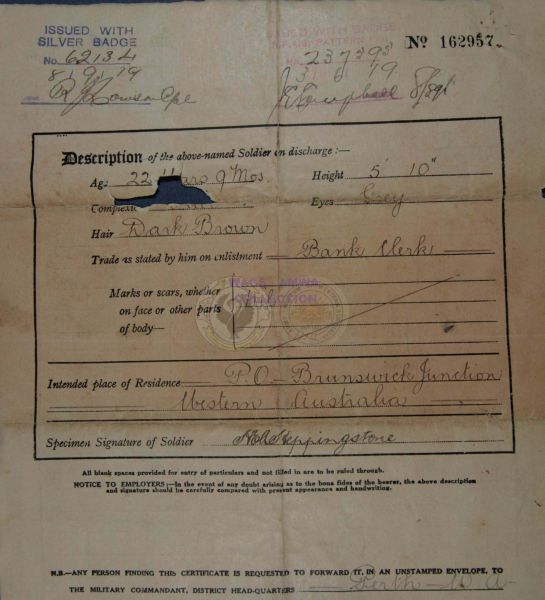 ISSUED WITH
SILVER BADGE
No. 62134
8/9/19
ISSUED WITH BADGE
237393
3/6/19
J Campbell S/Sgt
No 162957.
Description of the above-named Soldier on discharge:—
Age 22 Years 9 Mos.
Height 5' 10"
Complexion
Eyes Grey
Hair Dark Brown
Trade as stated by him on enlistment Bank Clerk
Marks or scars, whether
on face or other parts
of body—
RAOC ANWA
COLLECTION
Intended place of Residence P.O. Brunswick Junction
Western Australia
Specimen Signature of Soldier Heppingstone
All blank spaces provided for entry of particulars and not filled in are to be ruled through.
NOTICE TO EMPLOYERS:—In the event of any doubt arising as to the bona fides of the bearer, the above description
and signature should be carefully compared with present appearance and handwriting.
N.B.—ANY PERSON FINDING THIS CERTIFICATE IS REQUESTED TO FORWARD IT, IN AN UNSTAMPED ENVELOPE, TO
THE MILITARY COMMANDANT, DISTRICT HEAD-QUARTERS Perth W A